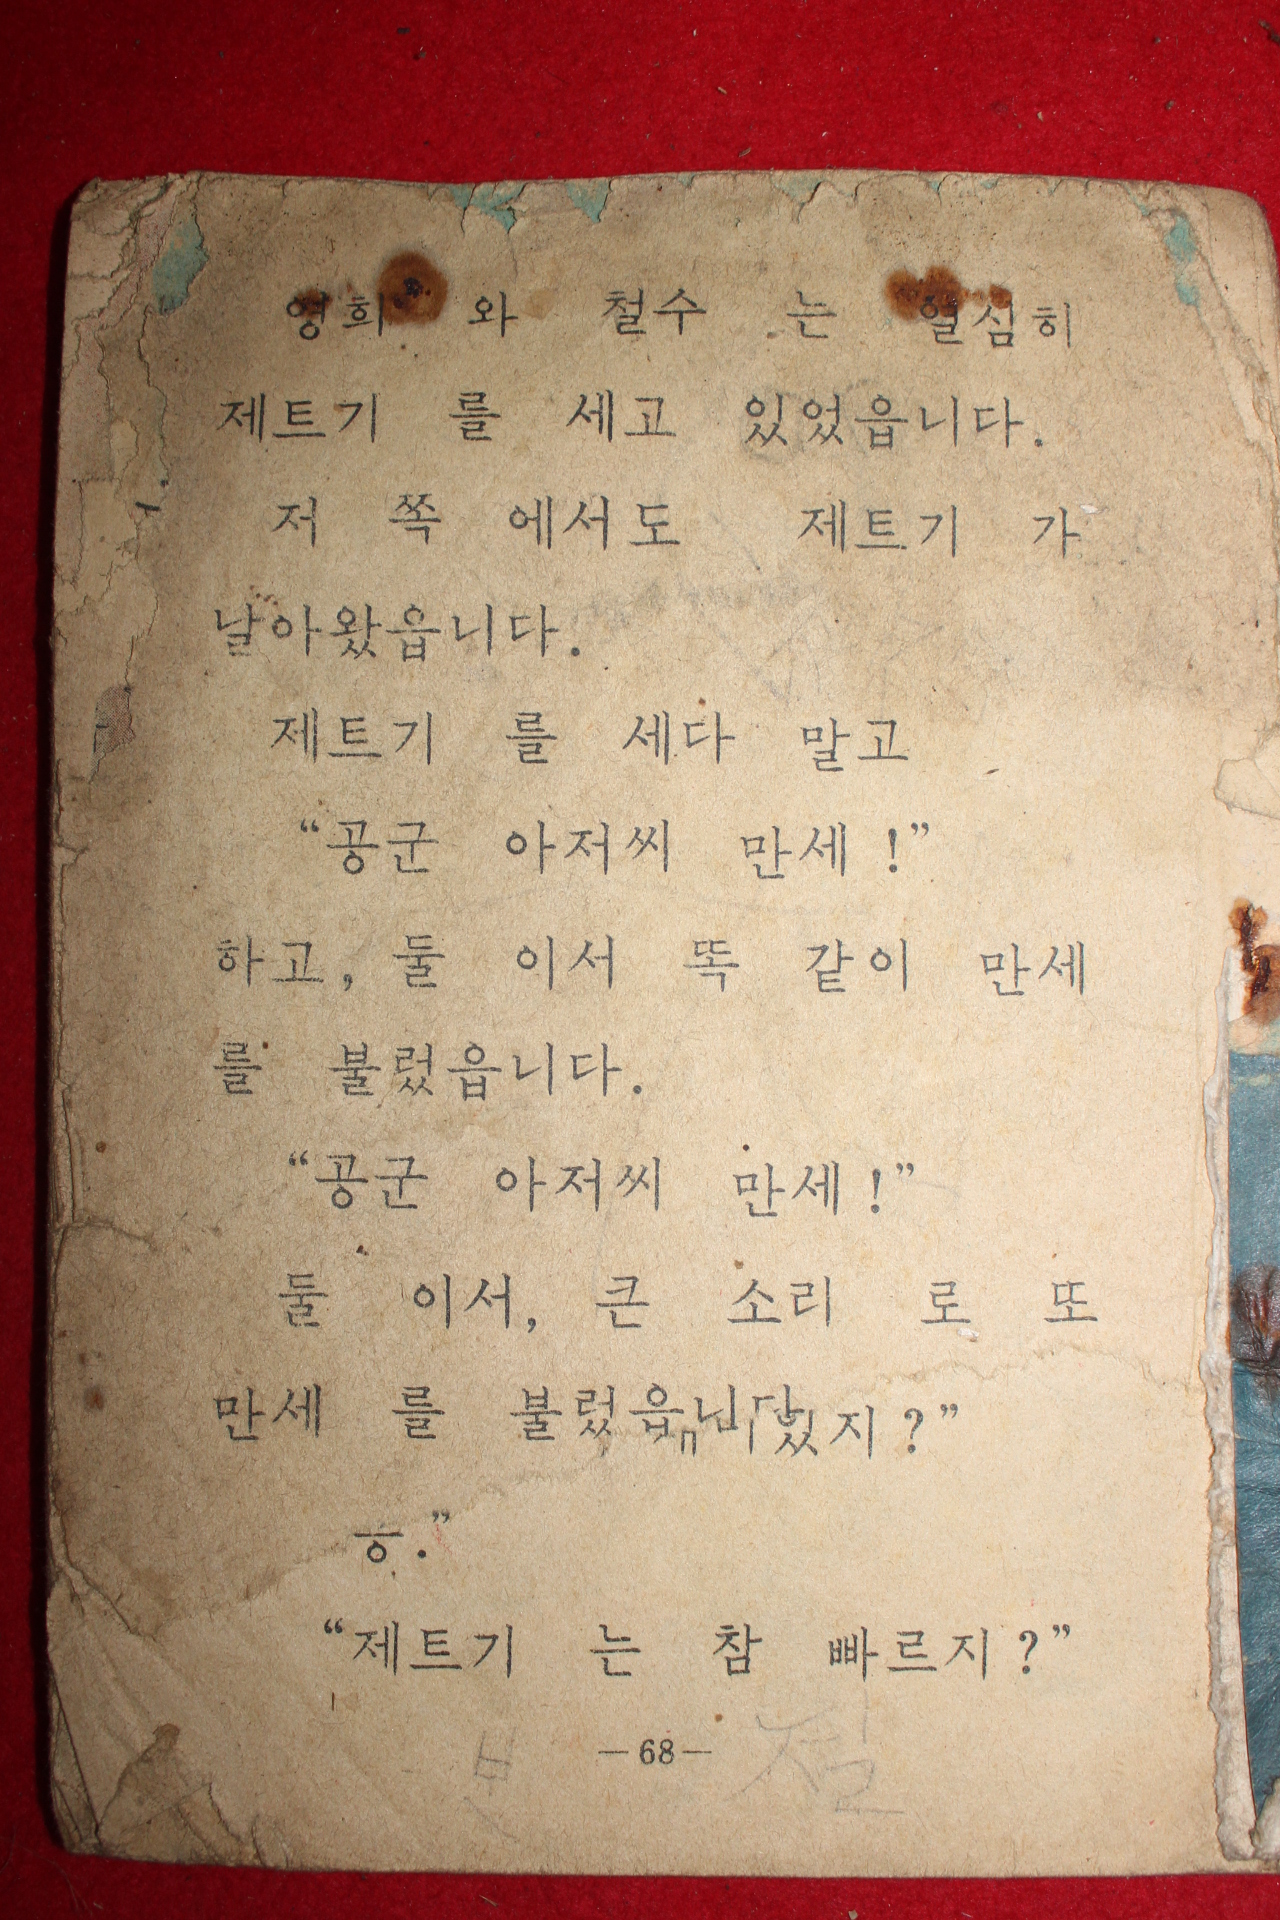 영희 와 철수 는 열심히
제트기 를 세고 있었읍니다.
저 쪽 에서도 제트기 가
날아왔읍니다.
제트기 를 세다 말고
“공군 아저씨 만세!”
하고, 둘 이서 똑 같이 만세
를 불렀읍니다.
“공군 아저씨 만세!”
둘 이서, 큰 소리 로 또
만세 를 불렀읍니다
지?”
“제트기 는 참 빠르지?”
—68—